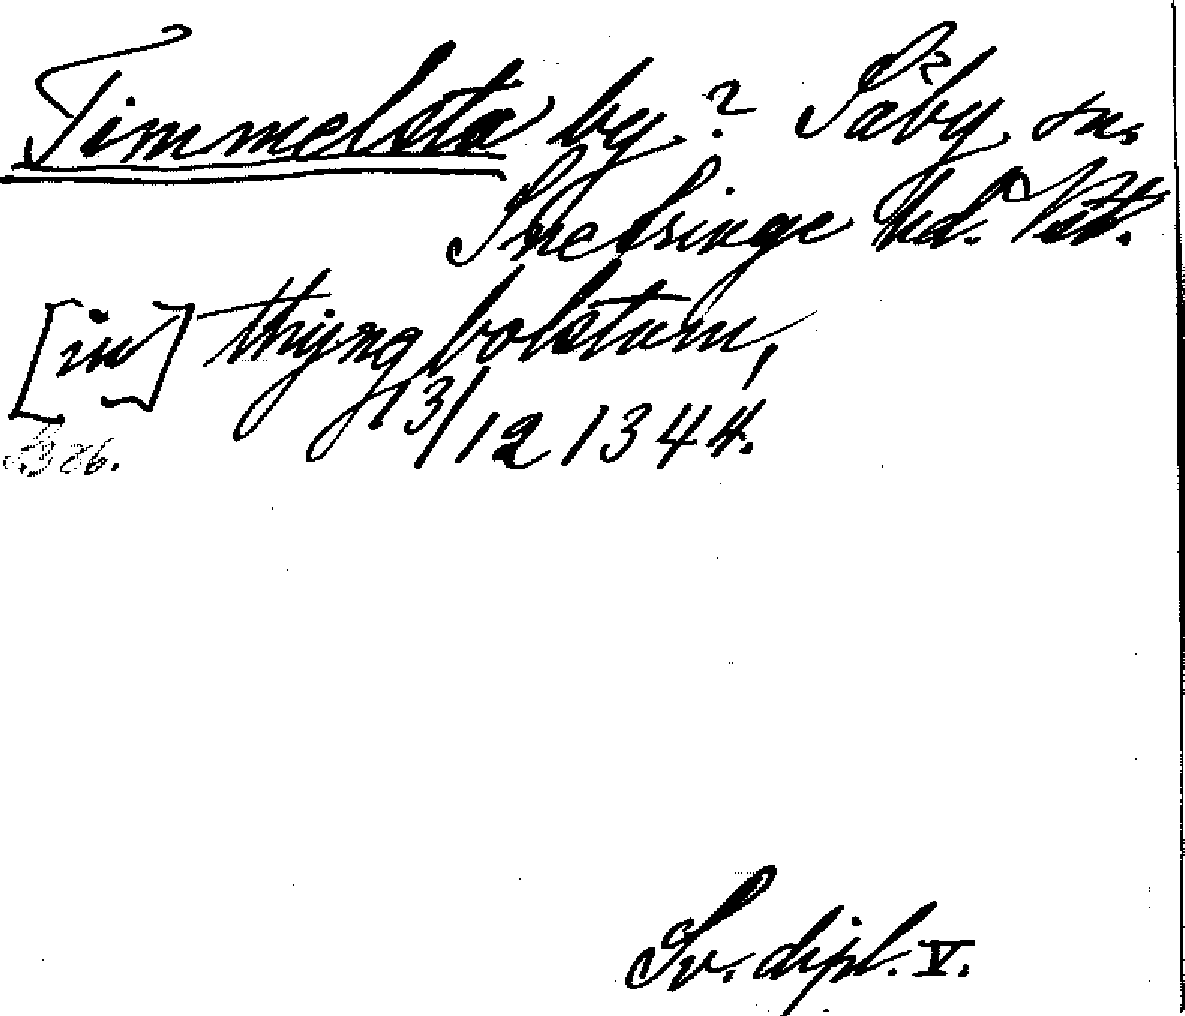 Timmelsta by.? Säby sn.
Snefringe hd. Vstl.
[in] thyngbolstum,
13/12 1344.
B 26.
Sv. dipl. V.